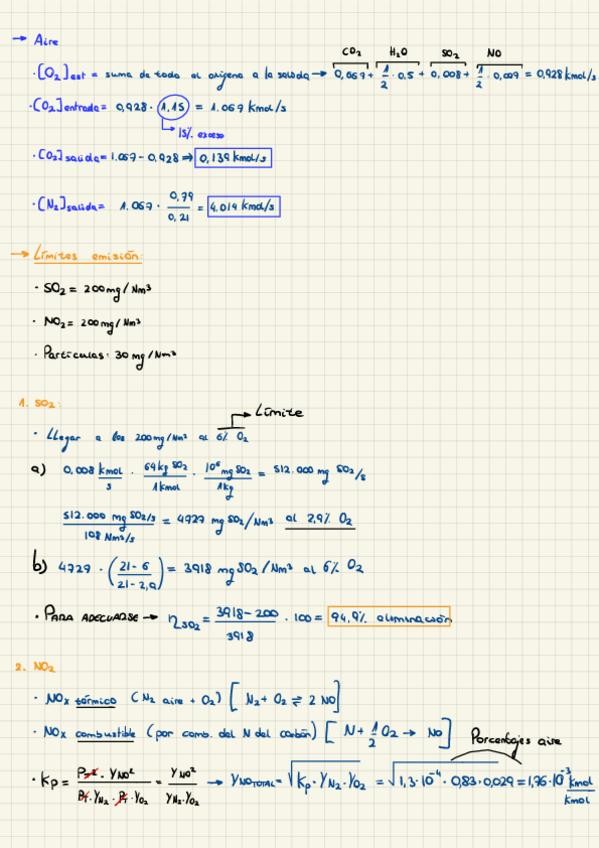 → Aire
CO₂ H₂O SO₂ NO
· [O₂]est = suma de todo el oxígeno a la salida → 0,669 + 1/2 · 0,5 + 0,008 + 1/2 · 0,009 = 0,928 kmol/s
· [O₂]entrada = 0,928 · 1,15 = 1.067 kmol/s
↳ 15% exceso
· [O₂]salida = 1.067 - 0,928 ⇒ 0,139 kmol/s
· [N₂]salida = 1.067 · 0,79/0,21 = 4.014 kmol/s
→ Límites emisión:
· SO₂ = 200 mg/Nm³
· NO₂ = 200 mg/Nm³
· Partículas: 30 mg/Nm³
1. SO₂:
→ Límite
· Llegar a los 200 mg/Nm³ al 6% O₂
a) 0,008 kmol/s · 64 kg SO₂/1 kmol · 10⁶ mg SO₂/1 kg = 512.000 mg SO₂/s
512.000 mg SO₂/s / 108 Nm³/s = 4729 mg SO₂/Nm³ al 2,9% O₂
b) 4729 · (21-6/21-2,9) = 3918 mg SO₂/Nm³ al 6% O₂
· PARA ADECUARSE → η SO₂ = 3918-200/3918 · 100 = 94,9% eliminación
2. NO₂
· NOx térmico (N₂ aire + O₂) [N₂ + O₂ ⇌ 2 NO]
· NOx combustible (por comb. del N del carbón) [N + 1/2 O₂ → NO]
Porcentajes aire
· Kp = P_T² · Y NO² / P_T · Y N₂ · P_T · Y O₂ = Y NO² / Y N₂ · Y O₂ → Y NO TOTAL = √(Kp · Y N₂ · Y O₂) = √(1,3·10⁻⁴ · 0,83 · 0,029) = 1,76·10⁻³ kmol/kmol